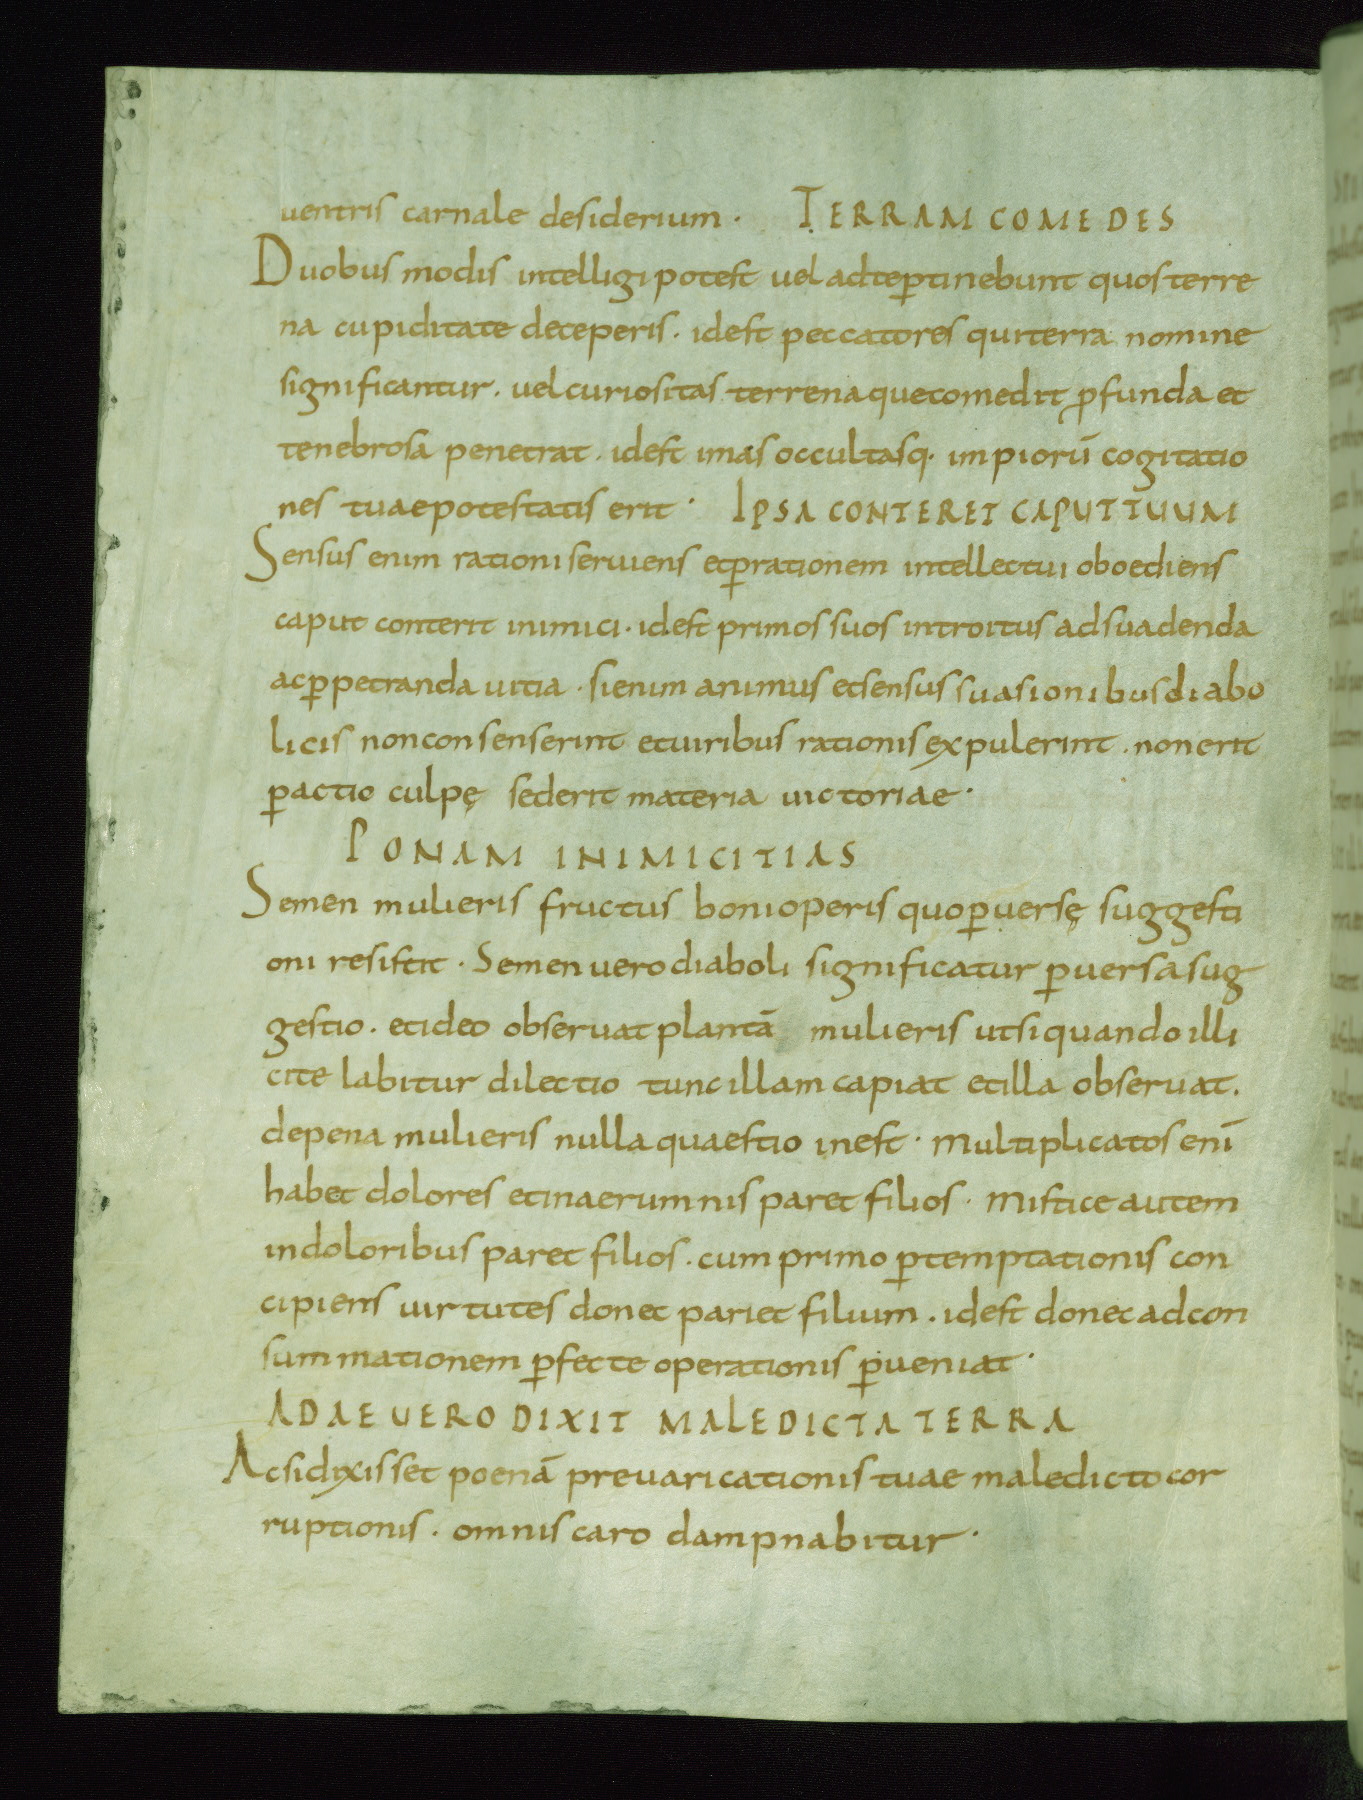 uentris carnale desiderium · TERRAM COMEDES
Duobus modis intelligi potest uel adte ꝑtinebunt quos terre
na cupiditate deceperis · idest peccatores qui terra nomine
significantur · uel curiositas terrena que comedit ꝓfunda et
tenebrosa penetrat · idest imas occultasq· impiorū cogitatio
nes tuae potestatis erit · IPSA CONTERET CAPUT TUUM
Sensus enim rationi seruiens et ꝑrationem intellectui oboediens
caput conterit inimici · idest primos suos introitus ad suadenda
ac ꝑpetranda uitia · si enim animus et sensus suasionibus diabo
licis non consenserint et uiribus rationis expulerint · non erit
ꝑactio culpę sed erit materia uictoriae ·
PONAM INIMICITIAS
Semen mulieris fructus boni operis quo ꝑuersę suggesti
oni resistit · Semen uero diaboli significatur ꝑuersa sug
gestio · et ideo obseruat plantā mulieris ut si quando illi
cite labitur dilectio tunc illam capiat et illa obseruat .
de pena mulieris nulla quaestio inest · Multiplicatos enī
habet dolores et in aerumnis paret filios · Mistice autem
in doloribus paret filios · cum primo ꝑtemptationis con
cipiens uirtutes donec pariet filium · idest donec ad con
summationem ꝑfecte operationis ꝑueniat ·
ADAE UERO DIXIT MALEDICTA TERRA
Ac si dixisset poenā preuaricationis tuae maledicto cor
ruptionis · omnis caro dampnabitur ·